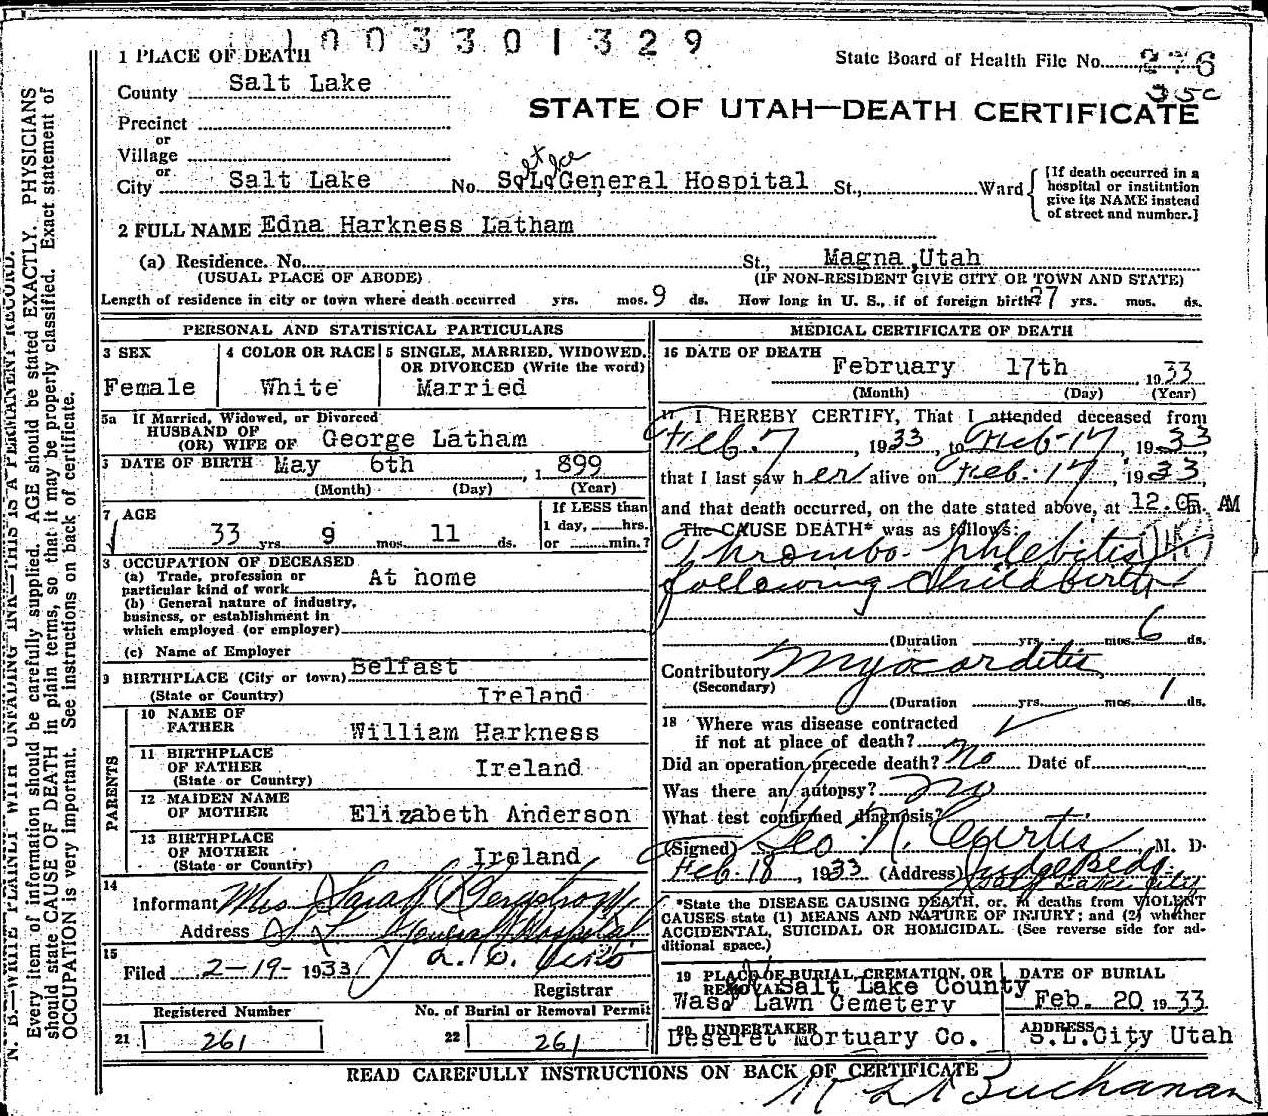 1003301329
1 PLACE OF DEATH
State Board of Health File No. 276
35c
County Salt Lake
STATE OF UTAH—DEATH CERTIFICATE
Precinct
or
Village
or
City Salt Lake No. S. L. General Hospital St., Ward
[If death occurred in a
hospital or institution
give its NAME instead
of street and number.]
2 FULL NAME Edna Harkness Latham
(a) Residence. No. St., Magna, Utah
(USUAL PLACE OF ABODE) (IF NON-RESIDENT GIVE CITY OR TOWN AND STATE)
Length of residence in city or town where death occurred yrs. mos. 9 ds. How long in U. S., if of foreign birth? 27 yrs. mos. ds.
PERSONAL AND STATISTICAL PARTICULARS
3 SEX
Female
4 COLOR OR RACE
White
5 SINGLE, MARRIED, WIDOWED,
OR DIVORCED (Write the word)
Married
5a If Married, Widowed, or Divorced
HUSBAND OF
(OR) WIFE OF George Latham
DATE OF BIRTH May 6th, 1899
(Month) (Day) (Year)
7 AGE
33 yrs. 9 mos. 11 ds.
If LESS than
1 day, hrs.
or min.?
OCCUPATION OF DECEASED
(a) Trade, profession or
particular kind of work At home
(b) General nature of industry,
business, or establishment in
which employed (or employer)
(c) Name of Employer
9 BIRTHPLACE (City or town) Belfast
(State or Country) Ireland
PARENTS
10 NAME OF
FATHER William Harkness
11 BIRTHPLACE
OF FATHER Ireland
(State or Country)
12 MAIDEN NAME
OF MOTHER Elizabeth Anderson
13 BIRTHPLACE
OF MOTHER Ireland
(State or Country)
14
Informant Mrs Sarah
Address S. L. General Hospital
15
Filed 2-19-1933
Registrar
Registered Number
21 261
No. of Burial or Removal Permit
22 261
MEDICAL CERTIFICATE OF DEATH
16 DATE OF DEATH
February 17th 1933
(Month) (Day) (Year)
17 I HEREBY CERTIFY, That I attended deceased from
Feb. 7, 1933, to Feb-17, 1933
that I last saw her alive on Feb. 17, 1933,
and that death occurred, on the date stated above, at 12.05 m. AM
The CAUSE DEATH* was as follows:
Thrombo-phlebitis
following Childbirth
(Duration yrs. mos. 6 ds.
Contributory Myocarditis
(Secondary)
(Duration yrs. mos. 1 ds.
18 Where was disease contracted
if not at place of death?
Did an operation precede death? No Date of
Was there an autopsy? no
What test confirmed diagnosis?
(Signed) Geo N. Curtis, M. D.
Feb-18, 1933 (Address) Judge Bldg.
Salt Lake City
*State the DISEASE CAUSING DEATH, or, in deaths from VIOLENT
CAUSES state (1) MEANS AND NATURE OF INJURY; and (2) whether
ACCIDENTAL, SUICIDAL OR HOMICIDAL. (See reverse side for ad-
ditional space.)
19 PLACE OF BURIAL, CREMATION, OR
REMOVAL Salt Lake County
Wasa Lawn Cemetery
DATE OF BURIAL
Feb. 20 1933
20 UNDERTAKER
Deseret Mortuary Co.
ADDRESS
S.L.City Utah
READ CAREFULLY INSTRUCTIONS ON BACK OF CERTIFICATE
Buchanan
N. B.—WRITE PLAINLY WITH UNFADING INK—THIS IS A PERMANENT RECORD.
Every item of information should be carefully supplied. AGE should be stated EXACTLY. PHYSICIANS
should state CAUSE OF DEATH in plain terms, so that it may be properly classified. Exact statement of
OCCUPATION is very important. See instructions on back of certificate.